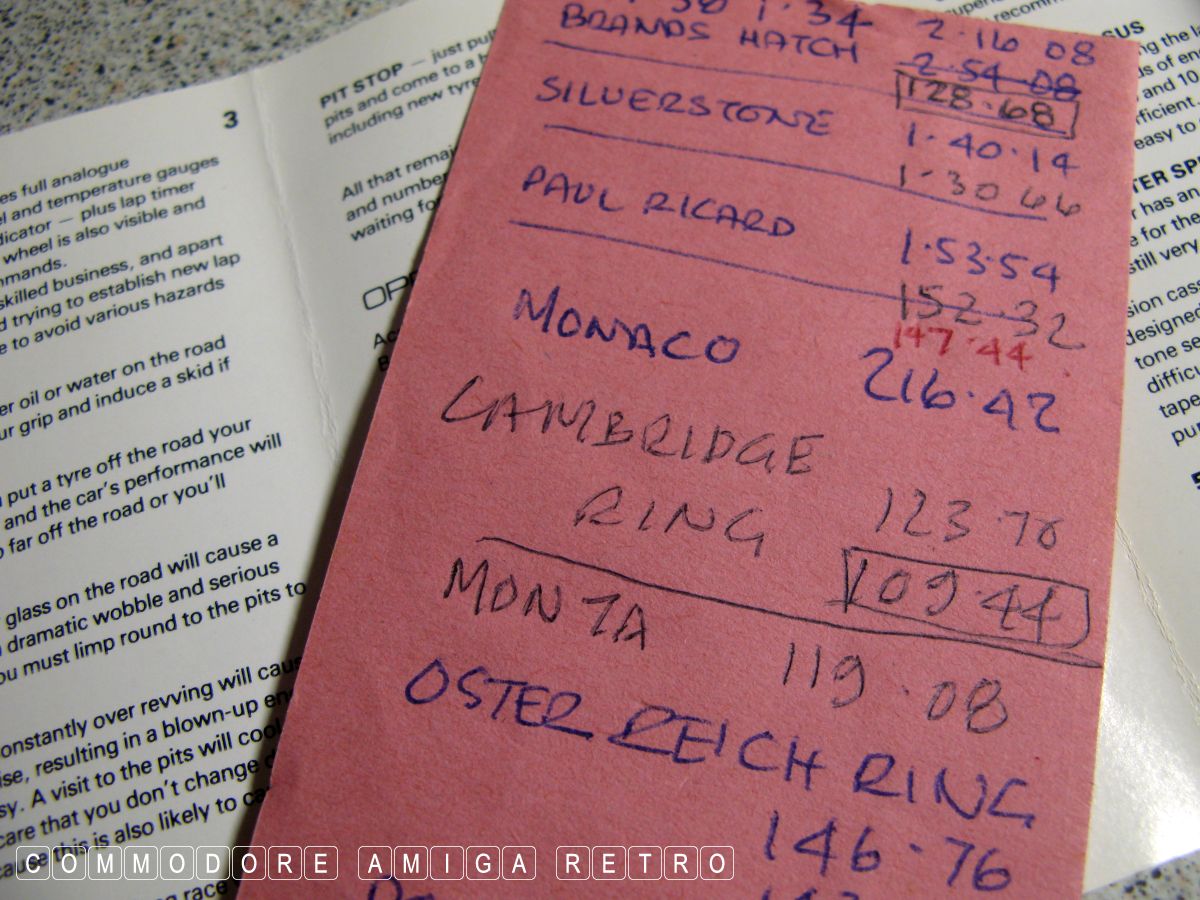 3
es full analogue
el and temperature gauges
dicator — plus lap timer
wheel is also visible and
mmands.
skilled business, and apart
d trying to establish new lap
e to avoid various hazards
er oil or water on the road
ur grip and induce a skid if
put a tyre off the road your
and the car's performance will
o far off the road or you'll
glass on the road will cause a
dramatic wobble and serious
ou must limp round to the pits to
onstantly over revving will caus
ise, resulting in a blown-up en
sy. A visit to the pits will cool
care that you don't change d
ause this is also likely to ca
ing race
PIT STOP — just pul
pits and come to a
including new tyre
All that remai
and number
waiting fo
OPE
Ac
1.34 2.16 08
BRANDS HATCH 2.54.08
128.68
SILVERSTONE 1.40.14
1.30 66
PAUL RICARD 1.53.54
152.32
147.44
MONACO 216.42
CAMBRIDGE
RING 123.70
109.44
MONZA 119.08
OSTERREICH RING
146.76
recomm
SUS
ng the la
ds of en
and 10
fficient
easy to
TER SP
r has an
e for the
still very
sion cass
designed
tone se
difficu
tape
pur
5
COMMODORE AMIGA RETRO